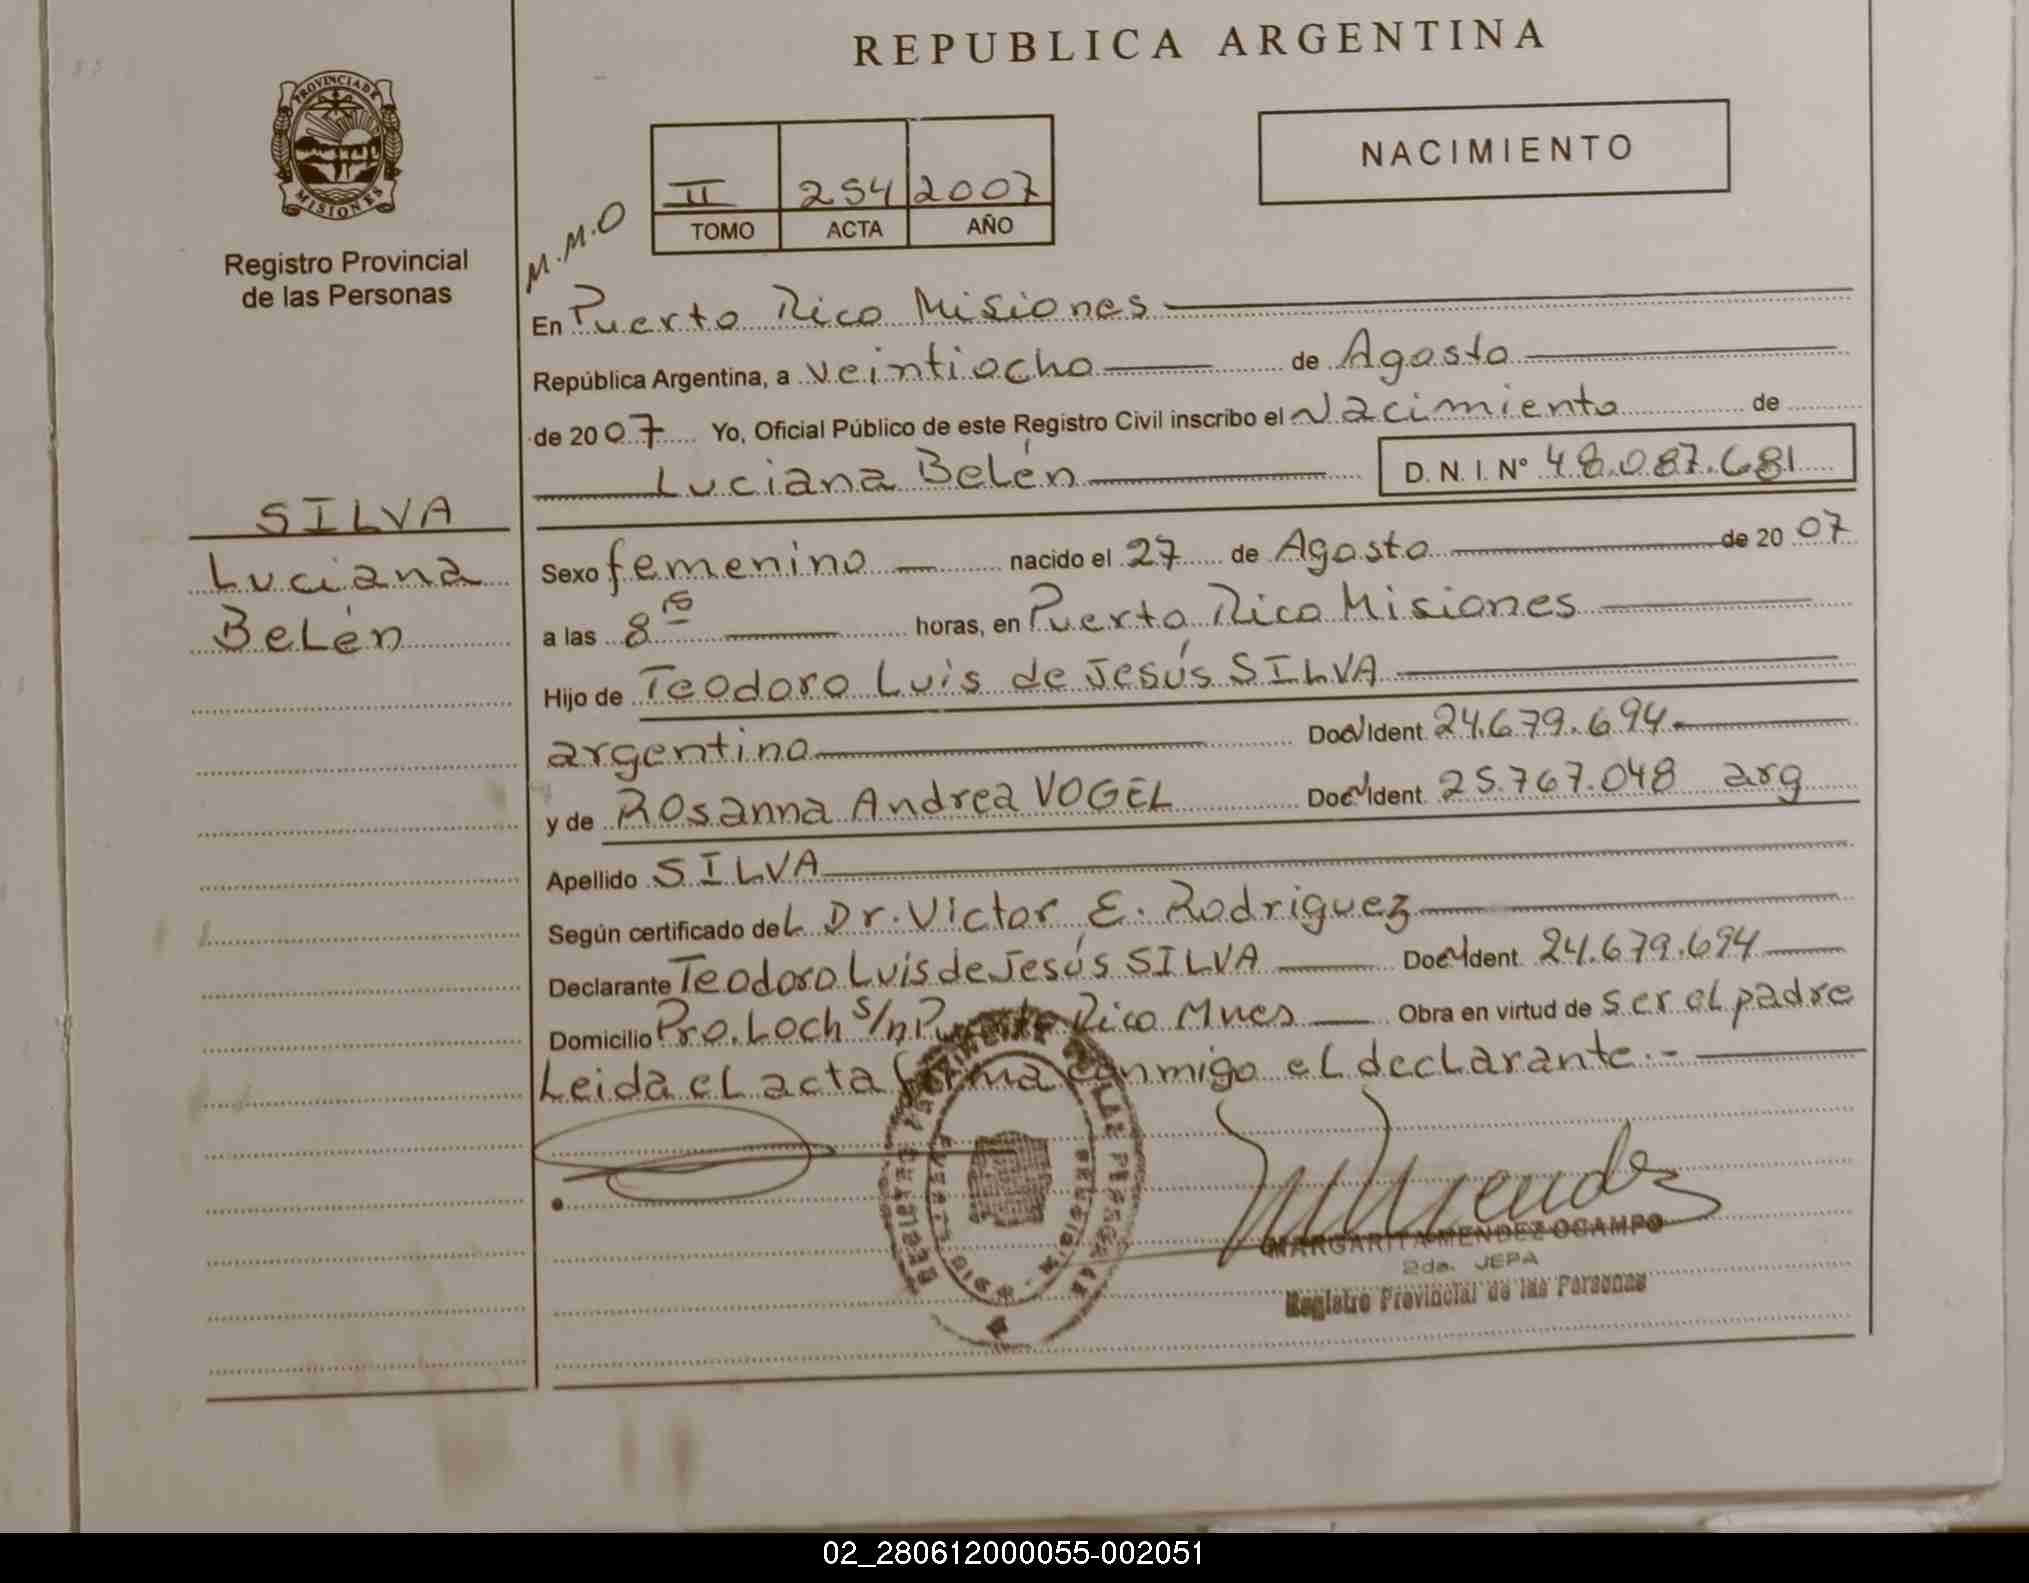 REPUBLICA ARGENTINA
PROVINCIA DE
MISIONES
Registro Provincial
de las Personas
NACIMIENTO
II 254 2007
TOMO ACTA AÑO
M.M.O
En Puerto Rico Misiones
República Argentina, a veintiocho de Agosto
de 2007 Yo, Oficial Público de este Registro Civil inscribo el Nacimiento de
Luciana Belén D. N. I. Nº 48.087.681
SILVA
Luciana
Belén
Sexo femenino nacido el 27 de Agosto de 2007
a las 8 15 horas, en Puerto Rico Misiones
Hijo de Teodoro Luis de Jesús SILVA
argentino Doc. Ident. 24.679.694
y de Rosanna Andrea VOGEL Doc. Ident. 25.767.048 arg
Apellido SILVA
Según certificado del Dr. Victor E. Rodriguez
Declarante Teodoro Luis de Jesús SILVA Doc. Ident. 24.679.694
Domicilio Pro. Loch s/n Puerto Rico Mnes Obra en virtud de ser el padre
Leida el acta firma conmigo el declarante.-
MARGARITA MENDEZ OCAMPO
2da. JEFA
Registro Provincial de las Personas
02_280612000055-002051